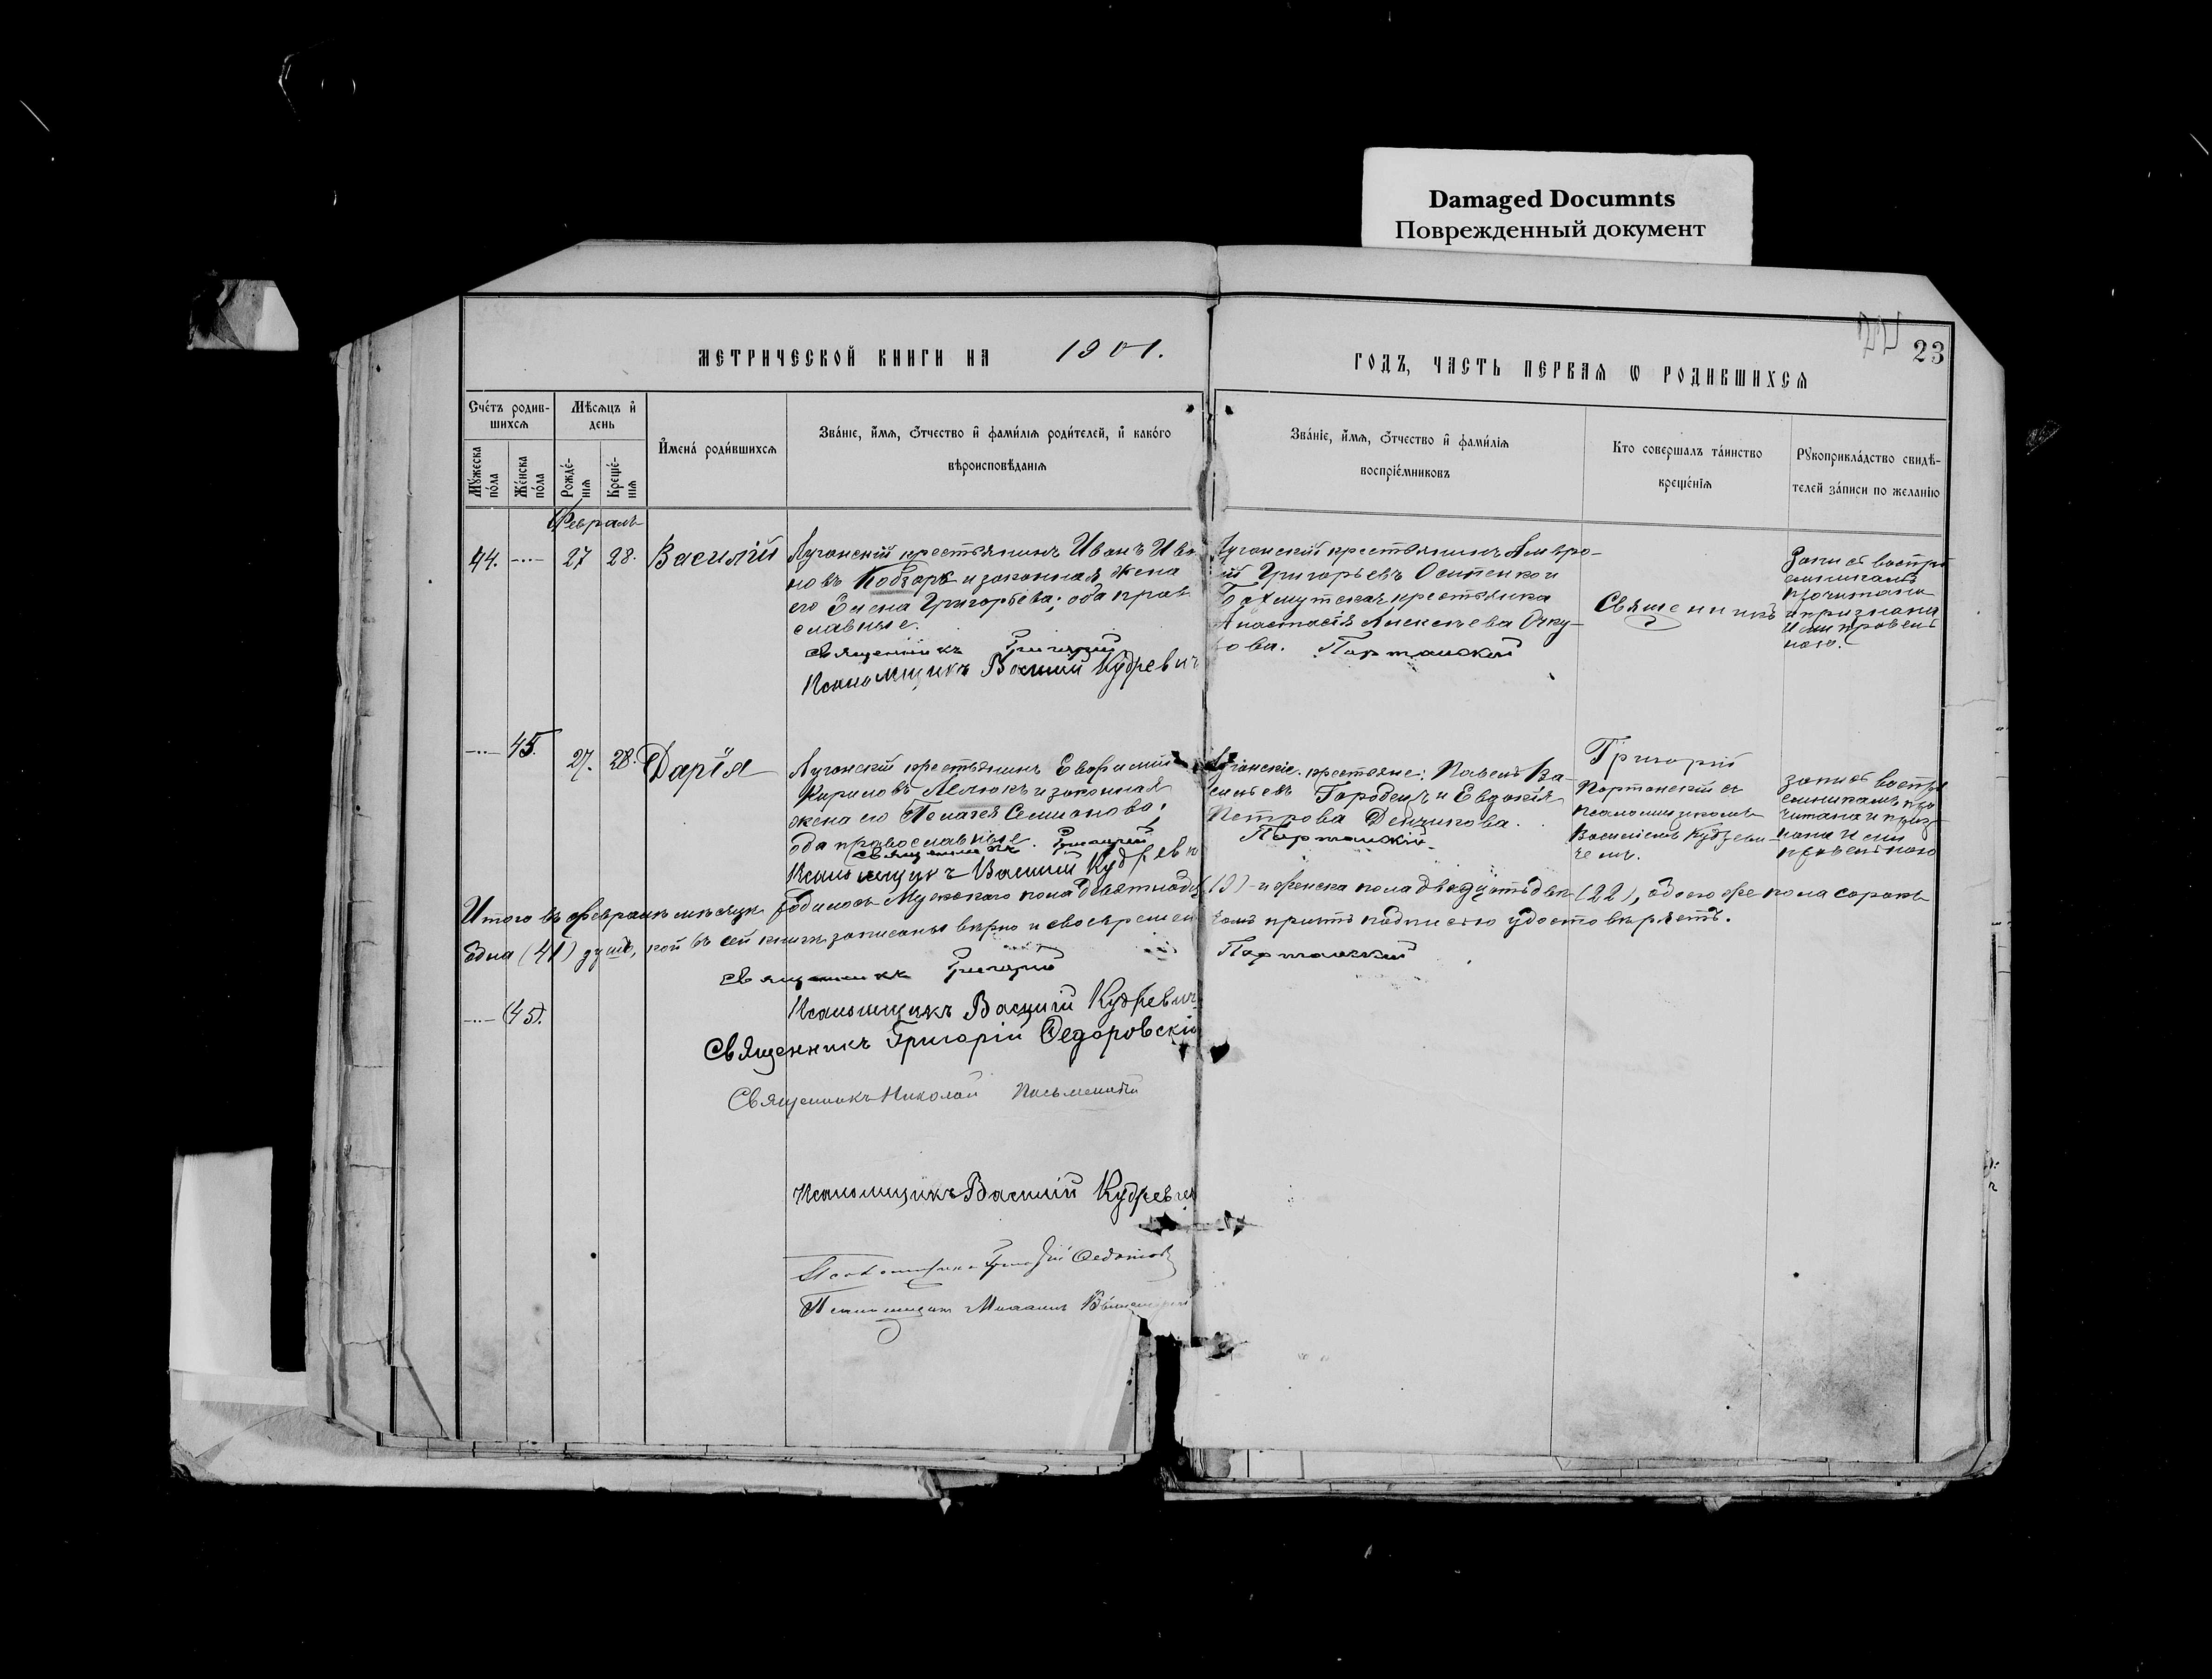 Damaged Documnts
Поврежденный документ
23
МЕТРИЧЕСКОЙ КНИГИ НА 1901.
ГОДЪ, ЧАСТЬ ПЕРВАЯ Ѡ РОДИВШИХСЯ
Счетъ родив-
шихся
Мужеска
пола
Женска
пола
Мѣсяцъ и
день
Рожде-
нія
Креще-
нія
Имена родившихся
Званіе, имя, отчество и фамилія родителей, и какого
вѣроисповѣданія
Званіе, имя, отчество и фамилія
воспріемниковъ
Кто совершалъ таинство
крещенія
Рукоприкладство свидѣ-
телей записи по желанію
Февраль
44. 27 28. Василій
Луганскій крестьянинъ Иванъ Ива
новъ Кобзарь и законная жена
его Елена Григорьева; оба право
славные.
Священникъ Григорій
Псаломщикъ Василій Кудревич
Луганскій крестьянинъ Амвро-
ій Григорьевъ Осипенко и
Бахмутская крестьянка
Анастасія Алексѣева
ова. Портанскій
Священникъ
Запись воспрі
емникамъ
прочитана
и признана
ими правиль
ною.
45. 27. 28. Дарія
Луганскій крестьянинъ Евфимій
Кириловъ и законная
жена его Пелагея Семионова;
оба православные. Григорій
Священникъ
Псаломщикъ Василій Кудреви
Луганскіе крестьяне: Павелъ Ва-
сильевъ Городецъ и Евдокія
Петрова Денчикова.
Портанскій
Григорій
Портанскій съ
псаломщикомъ
Василіемъ Кудреви-
чемъ.
запись воспрі
емникамъ про
читана и приз-
нана ими
правильною
Итого въ февралѣ мѣсяцѣ родилось Мужского пола девятнадц (19) и женска пола двадцать двѣ (22), обоего же пола сорокъ
одна (41) душъ, кои въ сей книгѣ записаны вѣрно и своевремен въ чемъ причтъ подписью удостовѣряетъ.
Священникъ Григорій Портанскій
(45).
Псаломщикъ Василій Кудревич
Священникъ Григорій Федоровскій
Священникъ Николай
Псаломщикъ Василій Кудревич
Псаломщикъ
Псаломщикъ Михаилъ